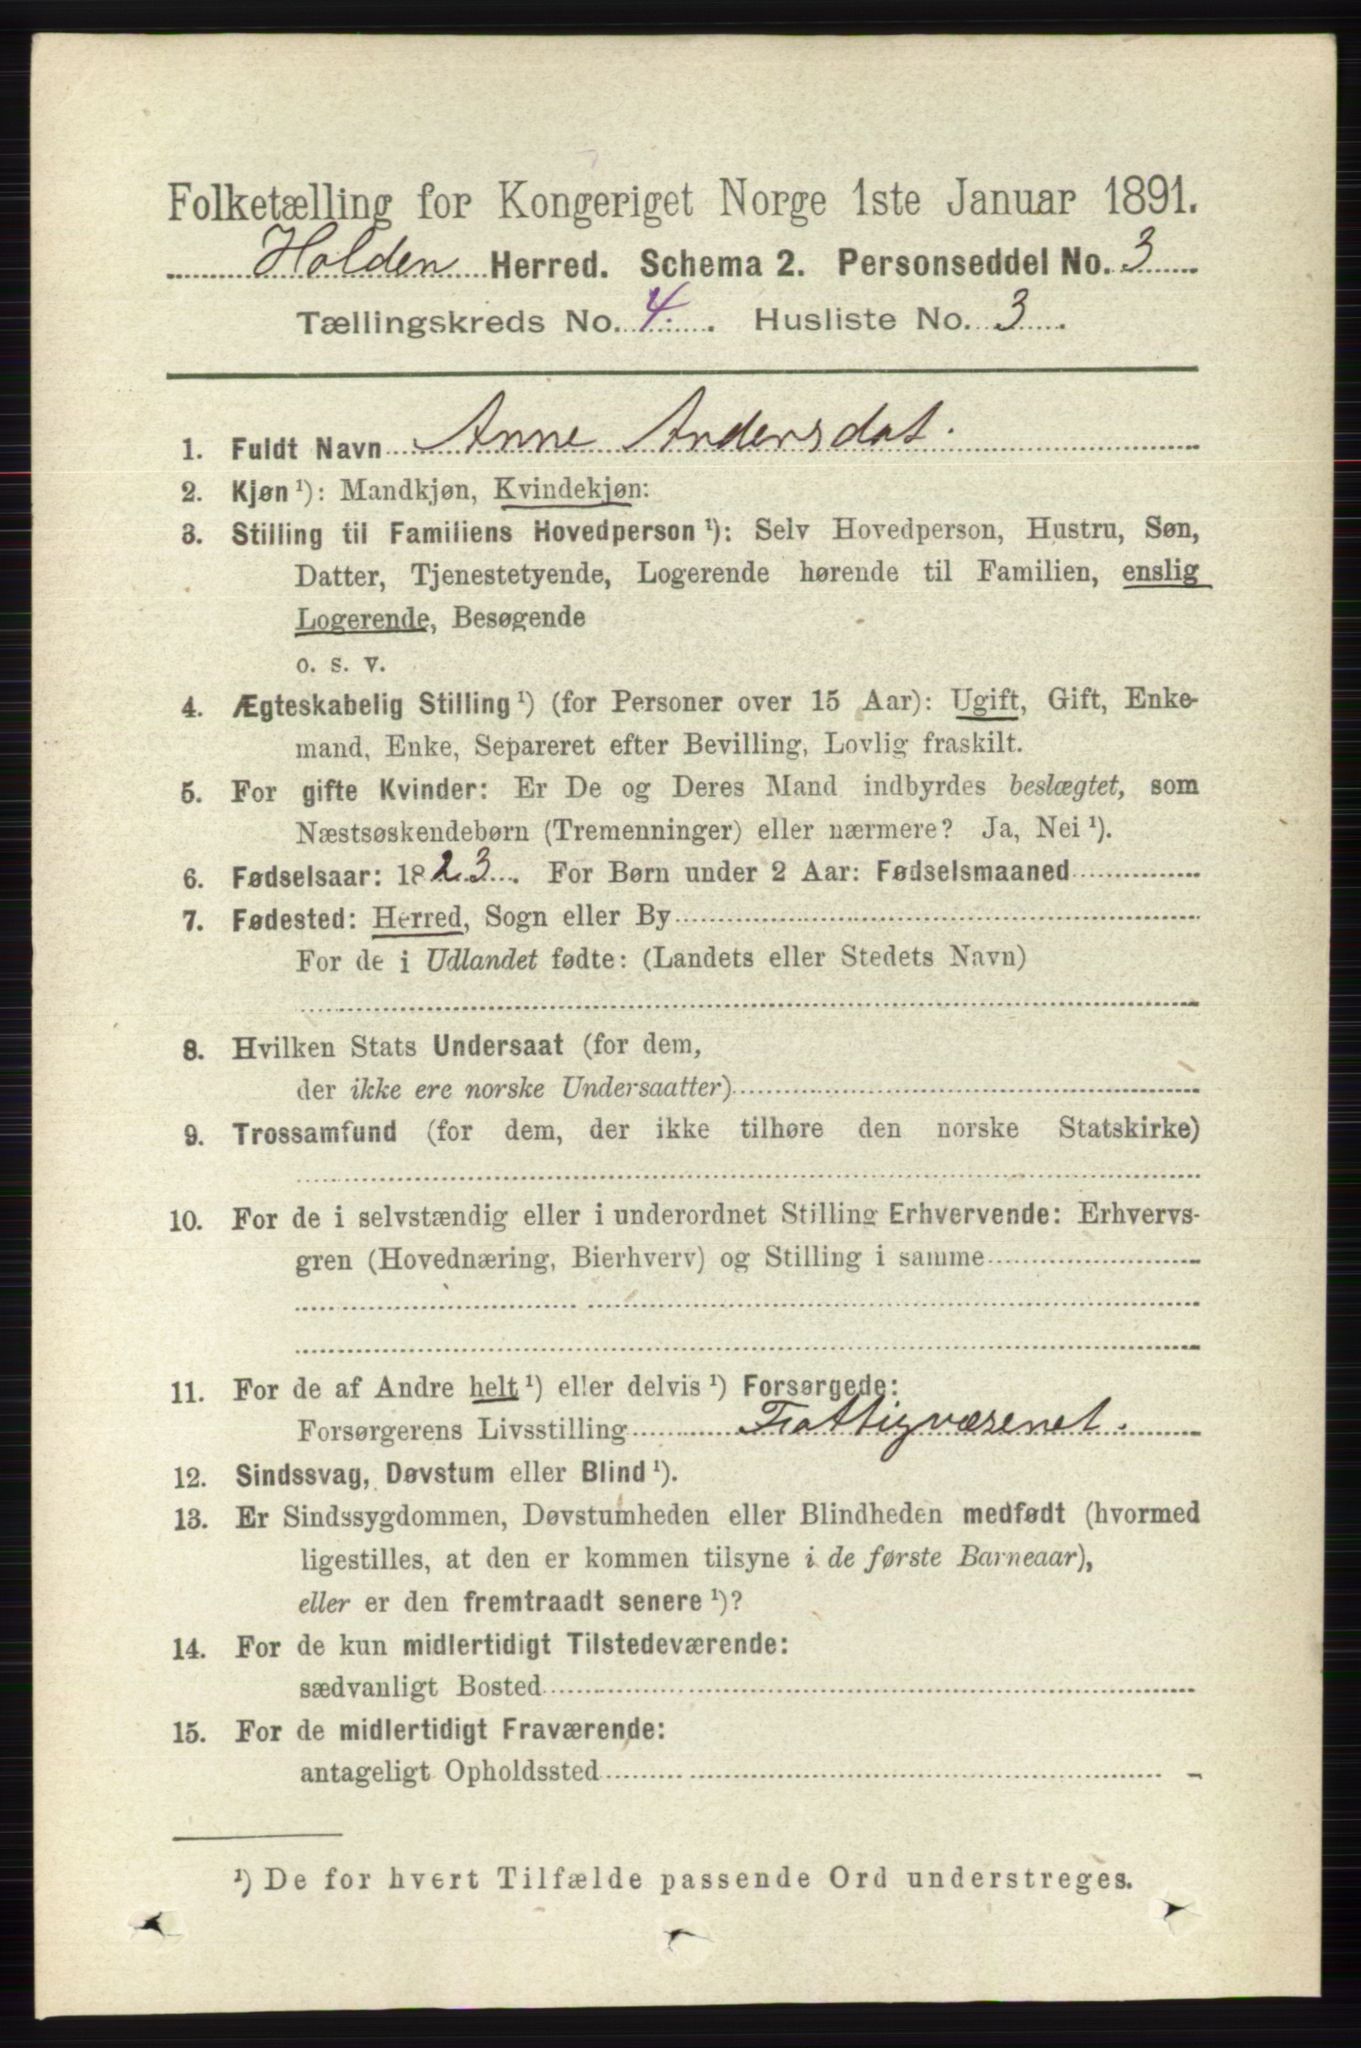 Folketælling for Kongeriget Norge 1ste Januar 1891.
Holden Herred. Schema 2. Personseddel No. 3
Tællingskreds No. 4. Husliste No. 3
1. Fuldt Navn Anne Andersdat.
2. Kjøn ¹): Mandkjøn, Kvindekjøn:
3. Stilling til Familiens Hovedperson ¹): Selv Hovedperson, Hustru, Søn,
Datter, Tjenestetyende, Logerende hørende til Familien, enslig
Logerende, Besøgende
o. s. v.
4. Ægteskabelig Stilling ¹) (for Personer over 15 Aar): Ugift, Gift, Enke-
mand, Enke, Separeret efter Bevilling, Lovlig fraskilt.
5. For gifte Kvinder: Er De og Deres Mand indbyrdes beslægtet, som
Næstsøskendebørn (Tremenninger) eller nærmere? Ja, Nei ¹).
6. Fødselsaar: 1823. For Børn under 2 Aar: Fødselsmaaned
7. Fødested: Herred, Sogn eller By
For de i Udlandet fødte: (Landets eller Stedets Navn)
8. Hvilken Stats Undersaat (for dem,
der ikke ere norske Undersaatter)
9. Trossamfund (for dem, der ikke tilhøre den norske Statskirke)
10. For de i selvstændig eller i underordnet Stilling Erhvervende: Erhvervs-
gren (Hovednæring, Bierhverv) og Stilling i samme
11. For de af Andre helt ¹) eller delvis ¹) Forsørgede:
Forsørgerens Livsstilling Fattigvæsenet.
12. Sindssvag, Døvstum eller Blind ¹).
13. Er Sindssygdommen, Døvstumheden eller Blindheden medfødt (hvormed
ligestilles, at den er kommen tilsyne i de første Barneaar),
eller er den fremtraadt senere ¹)?
14. For de kun midlertidigt Tilstedeværende:
sædvanligt Bosted
15. For de midlertidigt Fraværende:
antageligt Opholdssted
¹) De for hvert Tilfælde passende Ord understreges.